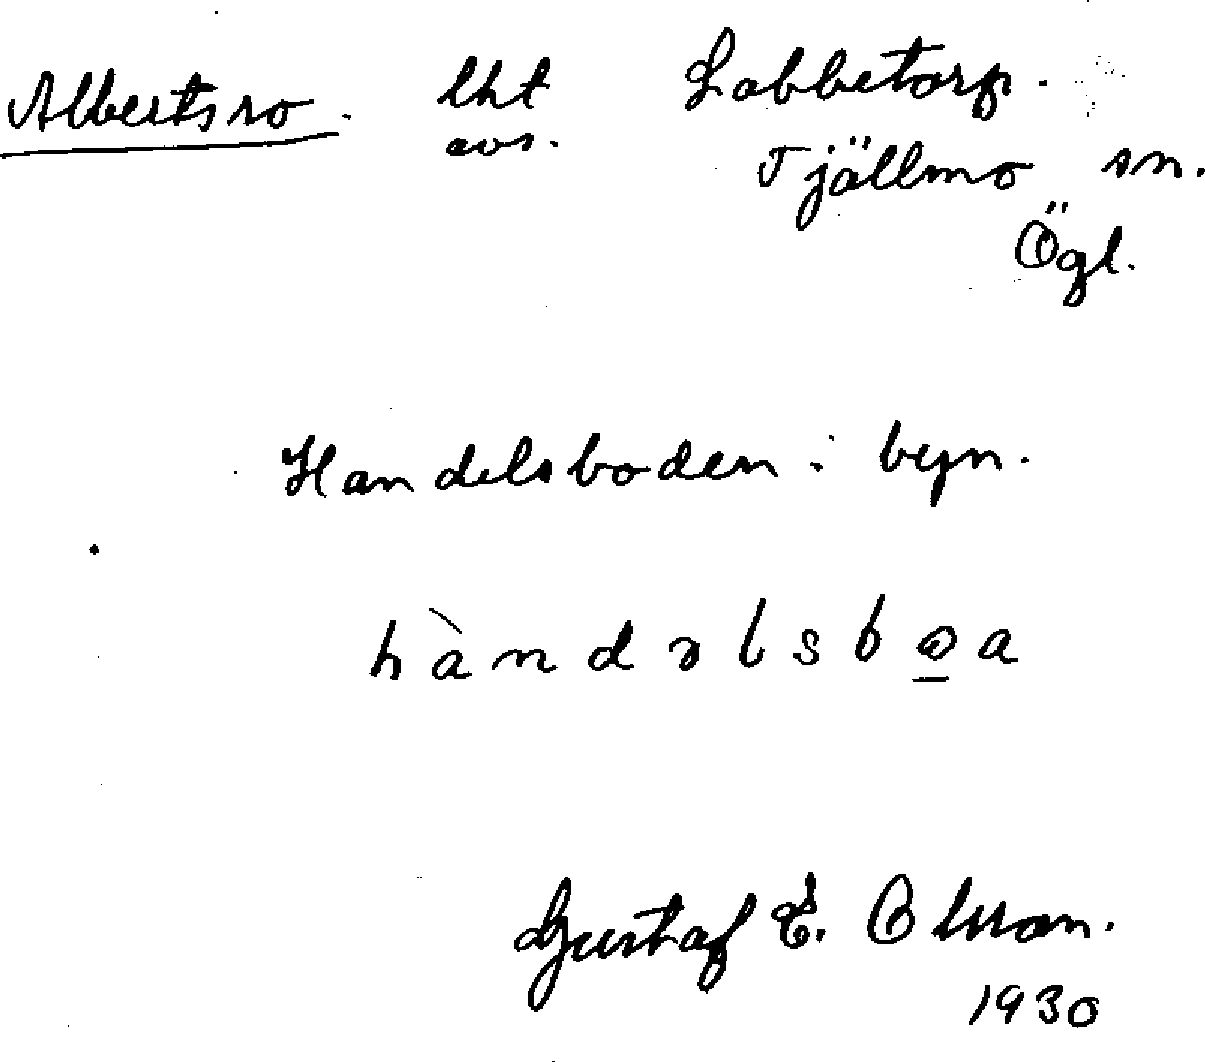 Albertsro. lht Labbetorp.
avs. Tjällmo sn.
Ögl.
Handelsboden i byn.
hàndəlsbωa
Gustaf E. Olsson.
1930